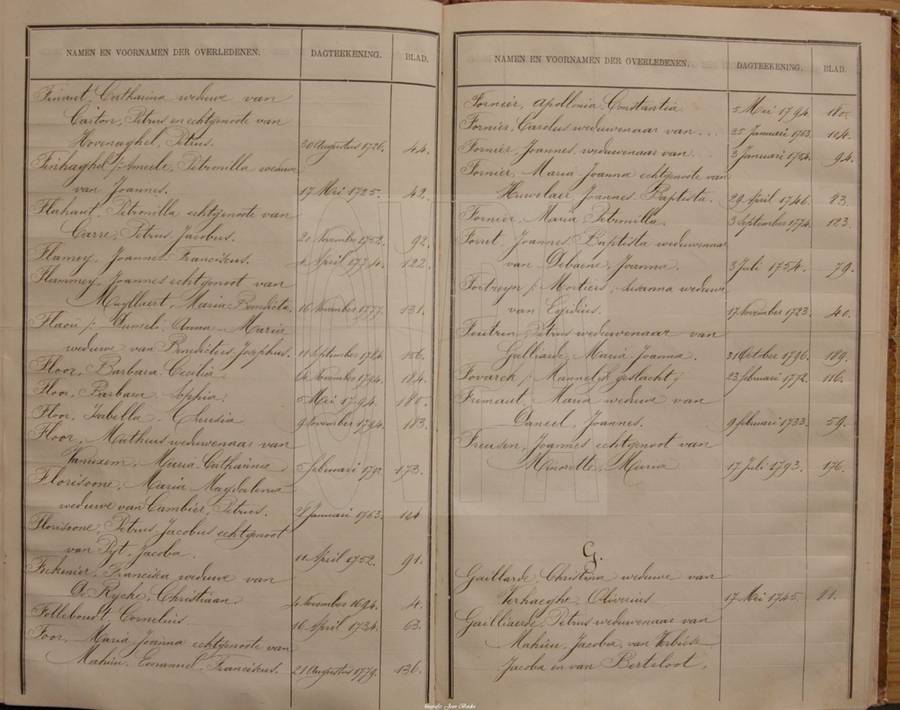 NAMEN EN VOORNAMEN DER OVERLEDENEN. DAGTEEKENING. BLAD.
Finaut, Catharina weduwe van
Carton, Petrus en echtgenoote van
Hovenaghel, Petrus. 30 Augustus 1726. 44.
Petronilla weduwe
van Joannes. 17 Mei 1725. 42.
Flahaut, Petronilla echtgenoote van
Carre, Petrus Jacobus. November 1752. 92.
Flamey, Joannes Franciskus. April 1774. 122.
Flammey, Joannes echtgenoot van
Muylluert, Maria Benedicta. 16 November 1777. 131.
Anna Maria
weduwe van Benedictus Josephus. 11 September 1784. 156.
Floor, Barbara Cecilia. November 1794. 184.
Floor, Barbara Sophia. 5 Mei 1794. 180.
Floor, Isabella Theresia. 9 November 1794. 183.
Floor, Matheus weduwenaar van
Vanuxem, Maria Catharina. 5 februari 173.
Florisoone, Maria Magdalena
weduwe van Cambier, Petrus. Januari 1763. 104
Florisoone, Petrus Jacobus echtgenoot
van Pyt, Jacoba. 11 April 1752. 91.
Franciska weduwe van
De Rycke, Christiaan. November 1694. 4.
Follebout, Cornelius. 16 April 1734. 63.
Foor, Maria Joanna echtgenoote van
Mahieu, Emanuel Franciskus. 21 Augustus 1779. 136.
NAMEN EN VOORNAMEN DER OVERLEDENEN. DAGTEEKENING. BLAD.
Fornier, Apollonia Constantia 5 Mei 1794 180.
Fornier, Carolus weduwenaar van . . . 25 Januari 1763. 104.
Fornier, Joannes, weduwenaar van . . . 3 Januari 1754. 94.
Fornier, Maria Joanna echtgenoote van
Huwelaer Joannes Baptista. 29 April 1746. 83.
Fornier Maria Petronilla. 3 September 1774. 123.
Forret, Joannes Baptista weduwenaar
van Debaene, Joanna. 3 Juli 1754. 79.
Mortier, Susanna weduwe
van Egidius. 17 November 1723. 40.
Foutrein, Petrus weduwenaar van
Galliarde, Maria Joanna. 31 October 1796. 189.
Fovarck / Mannelijk geslacht / 23 februari 1772. 116.
Fremaut, Maria weduwe van
Daneel, Joannes. 9 februari 1733. 59.
Joannes echtgenoot van
Maria 17 Juli 1793. 176.
G.
Gaillarde, Christina weduwe van
Verhaeghe, Oliverius. 17 Mei 1745. 81.
Gailliaerde, Petrus weduwenaar van
Mahieu, Jacoba, van
Jacoba en van Berteloot.